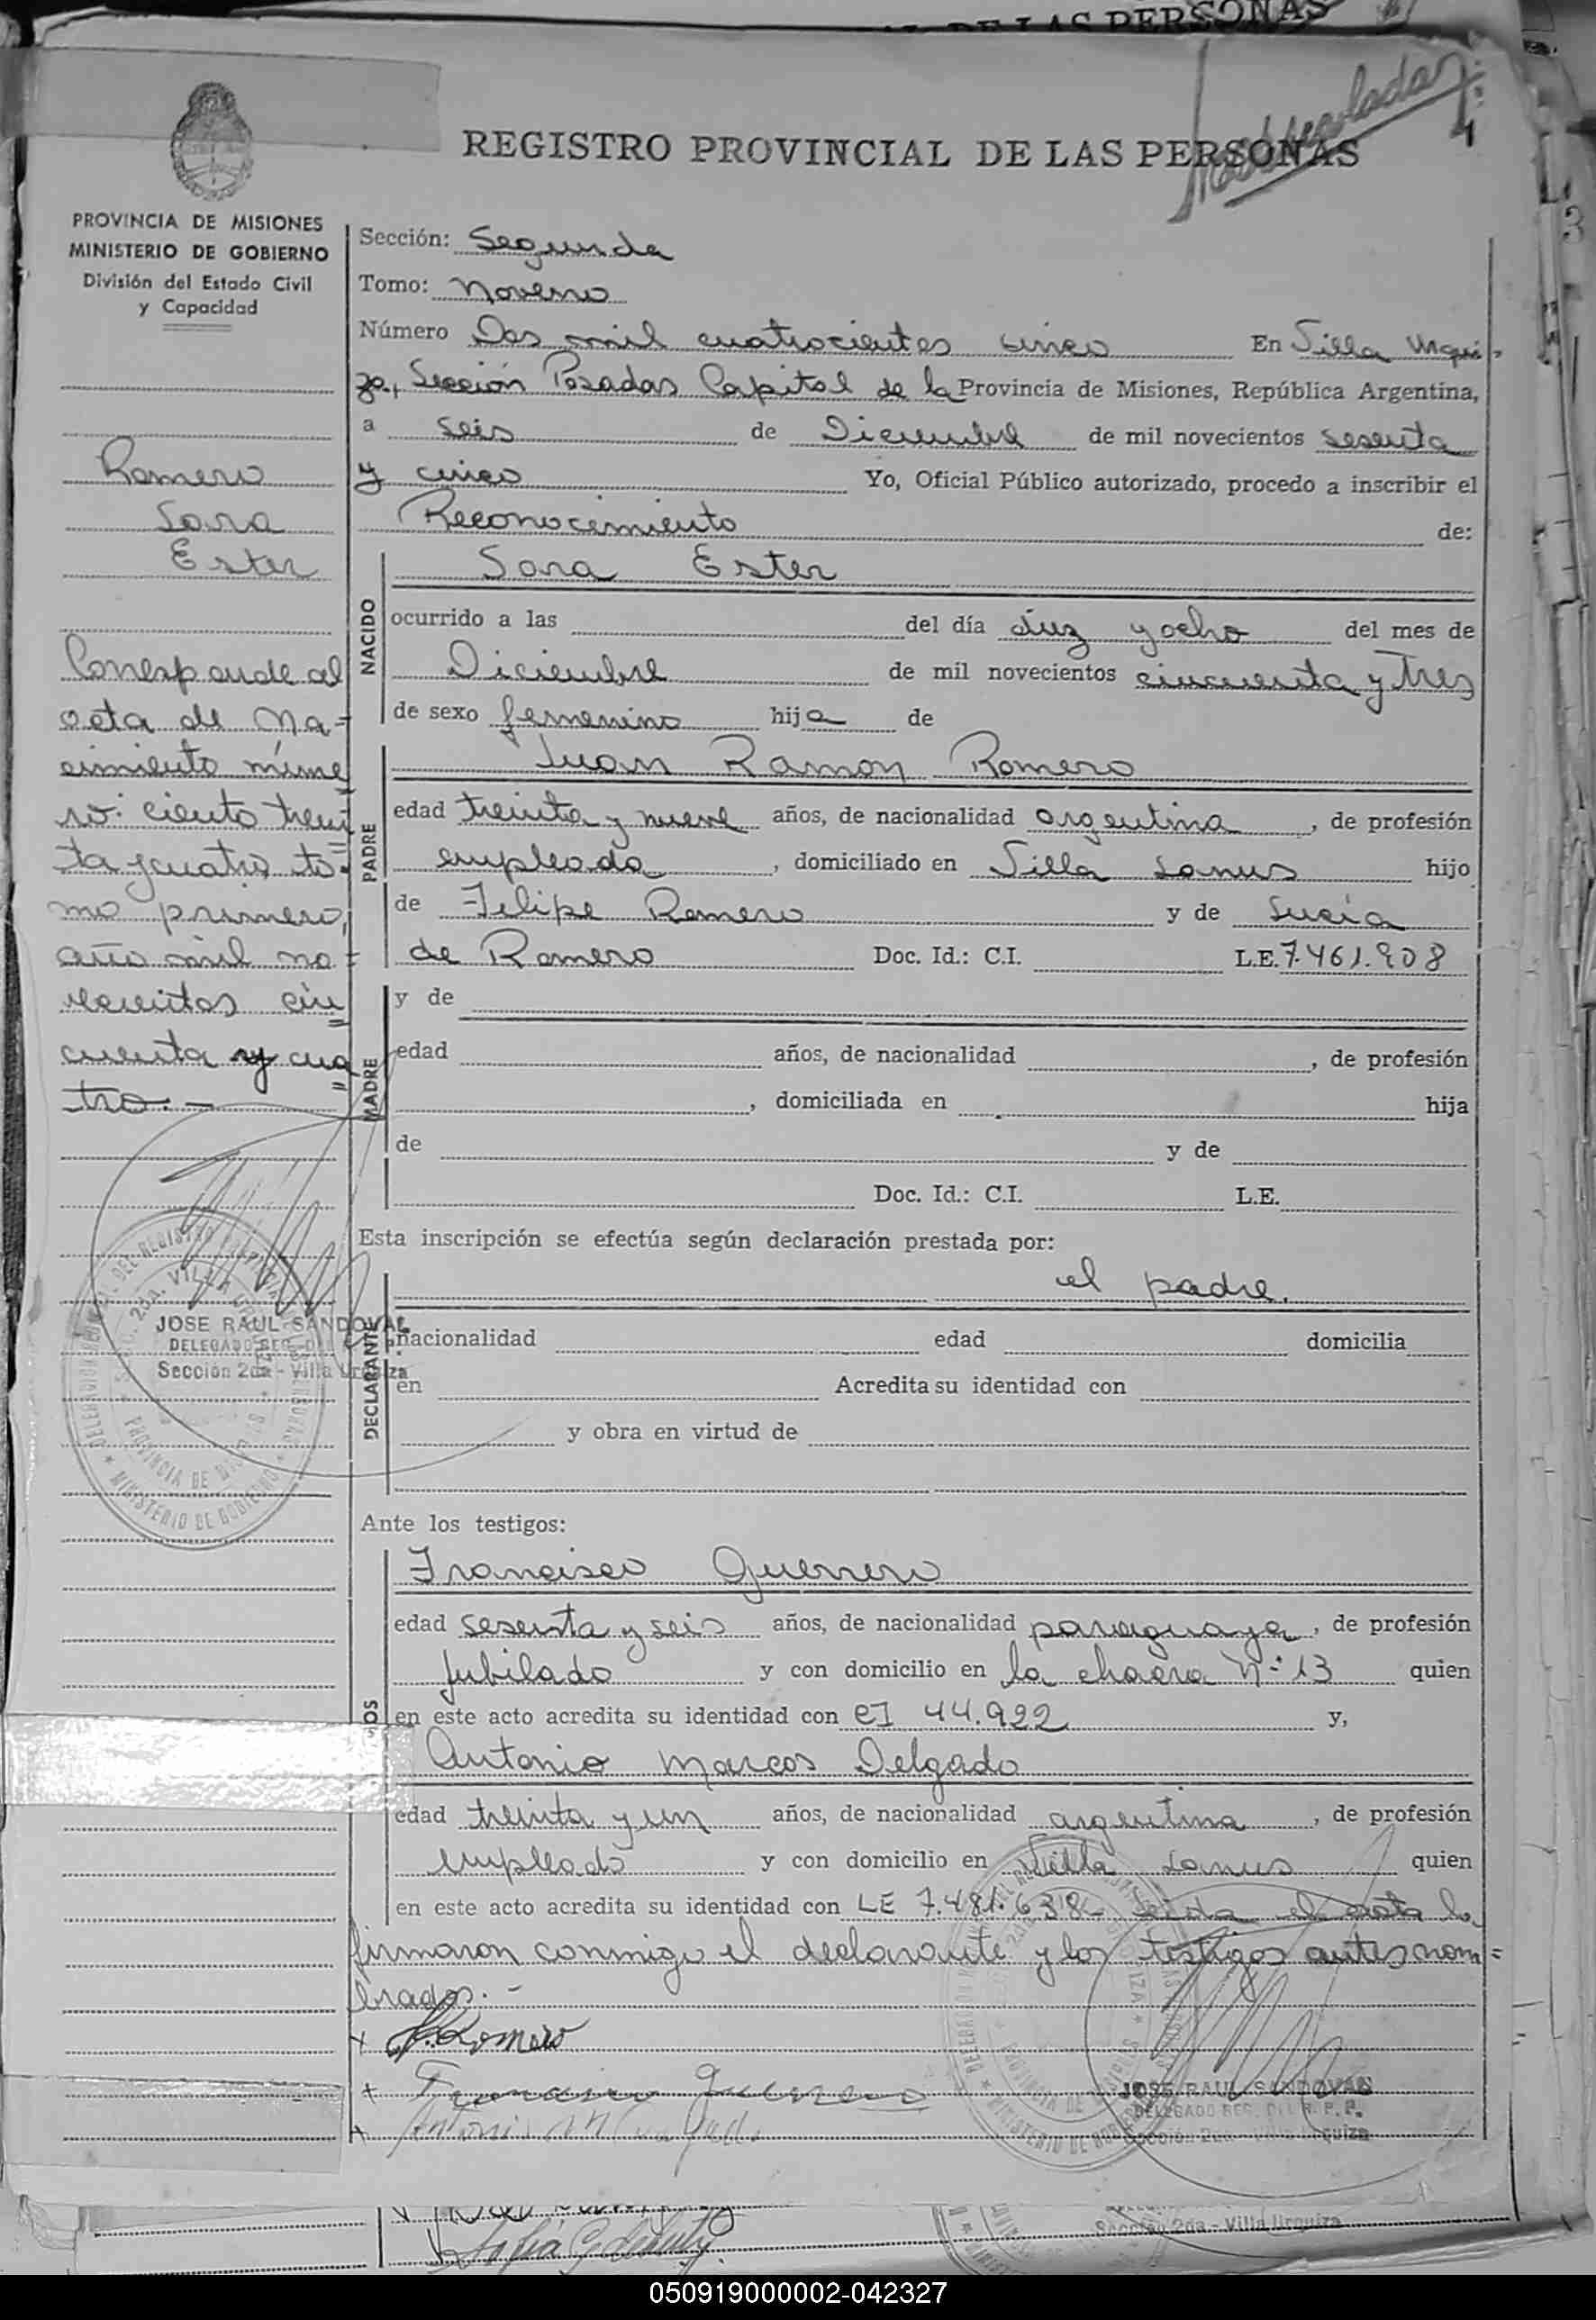 REGISTRO PROVINCIAL DE LAS PERSONAS
PROVINCIA DE MISIONES
MINISTERIO DE GOBIERNO
División del Estado Civil
y Capacidad
Romero
Sara
Ester
Corresponde al
acta de Na=
cimiento núme=
ro: ciento trein
ta y cuatro to-
mo primero,
año mil no=
vecientos cin=
cuenta y cua=
tro.-
JOSE RAUL SANDOVAL
DELEGADO REG. DEL
Sección 2da - Villa Urquiza
Sección: Segunda
Tomo: Noveno
Número Dos mil cuatrocientos cinco En Villa Urqui-
za, Sección Posadas Capital de la Provincia de Misiones, República Argentina,
a seis de Diciembre de mil novecientos sesenta
y cinco Yo, Oficial Público autorizado, procedo a inscribir el
Reconocimiento de:
NACIDO
Sara Ester
ocurrido a las del día diez y ocho del mes de
Diciembre de mil novecientos cincuenta y Tres
de sexo femenino hija de
PADRE
Juan Ramon Romero
edad treinta y nueve años, de nacionalidad argentina, de profesión
empleado, domiciliado en Villa Lanus hijo
de Felipe Romero y de Lucía
de Romero Doc. Id.: C.I. L.E. 7.461.908
MADRE
y de
edad años, de nacionalidad , de profesión
, domiciliada en hija
de y de
Doc. Id.: C.I. L.E.
Esta inscripción se efectúa según declaración prestada por:
DECLARANTE
el padre.
nacionalidad edad domicilia
en Acredita su identidad con
y obra en virtud de
Ante los testigos:
Francisco Guerrero
edad sesenta y seis años, de nacionalidad paraguaya, de profesión
jubilado y con domicilio en la chacra Nº 13 quien
en este acto acredita su identidad con CI 44.922 y,
Antonio Marcos Delgado
edad treinta y un años, de nacionalidad argentina, de profesión
empleado y con domicilio en Villa Lanus quien
en este acto acredita su identidad con LE 7.481.638- Leida el acta la
firmaron conmigo el declarante y los testigos antes nom=
brados.-
Romero
Francisco Guerrero
JOSE RAUL SANDOVAL
DELEGADO REG. DEL R. P. P.
Sección 2da - Villa Urquiza
Sección 2da - Villa Urquiza
050919000002-042327